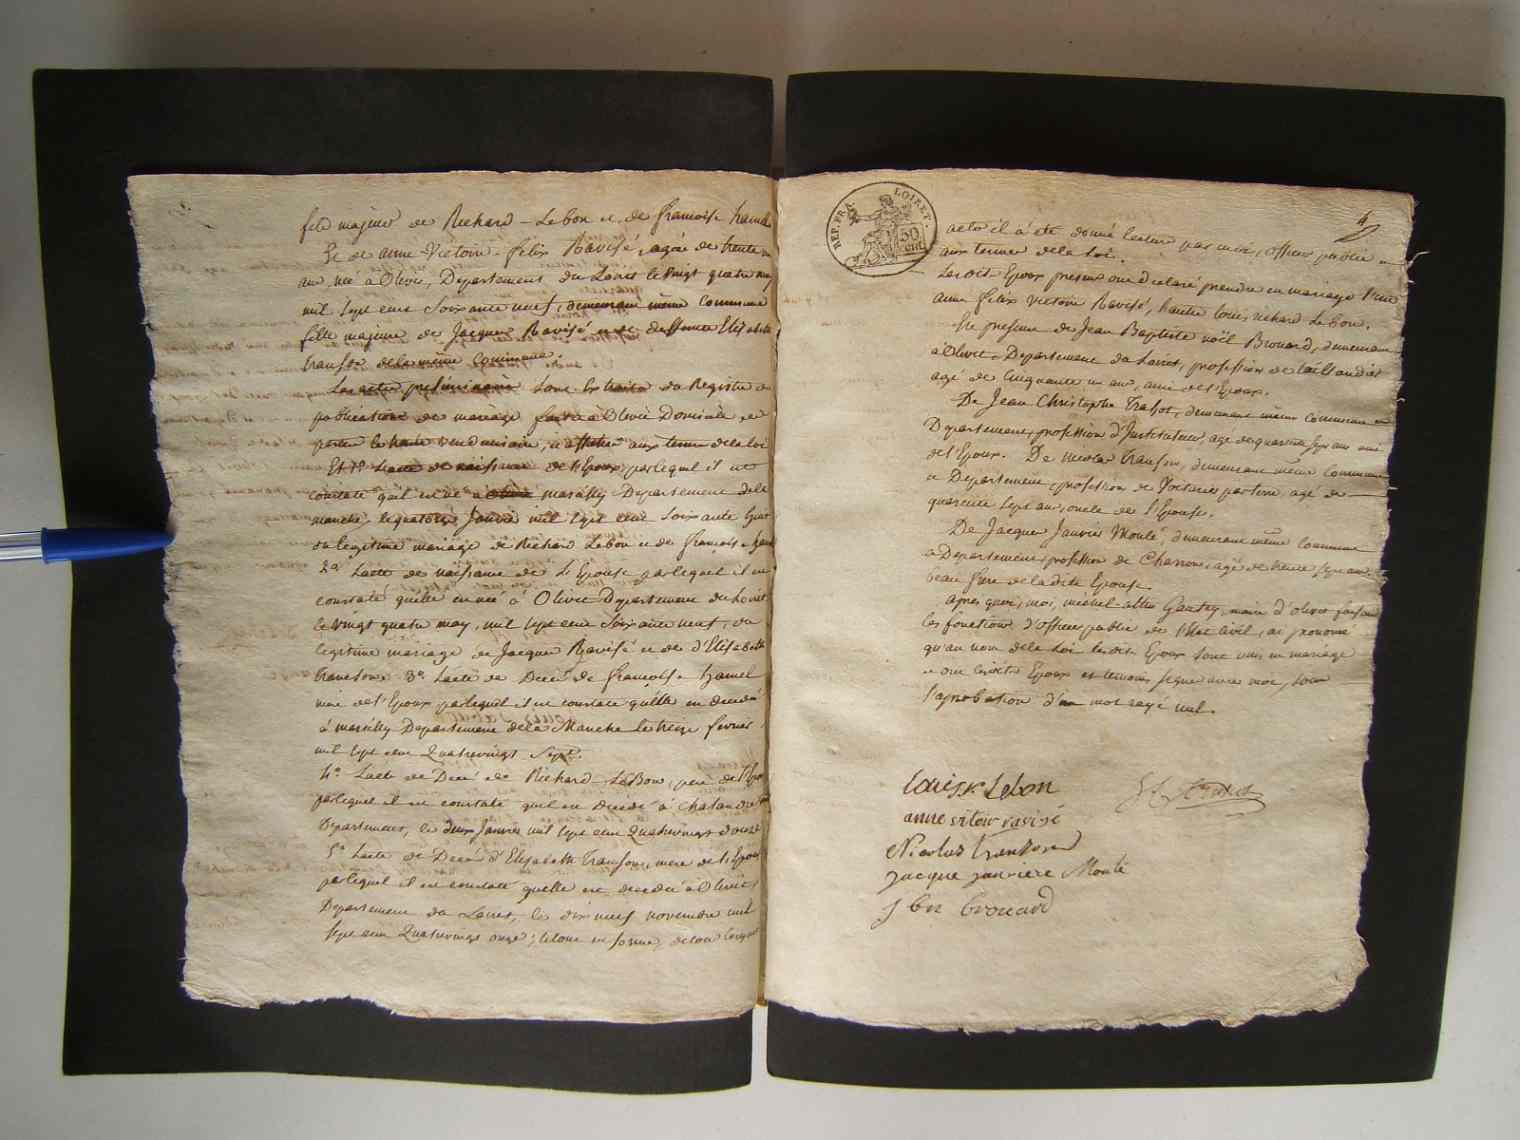 fils majeur de Richard Lebon et de françoise hamel
Et de anne Victoire felix Ravisé, agée de trente
ans, né à Olivet, Département du Loiret le vingt quatre may
mil sept cent soixante neuf, demeurant même Commune
fille majeure de Jacques Ravisé et de deffuncte Elizabeth
transon de la même Commune.
Les actes préliminaires sont Extraits du Registre de
publications de mariage faite à Olivet
vendémiaire, et affichée aux termes de la loi
Et 1º Lacte de naissance de l'Epoux, par lequel il est
constaté qu'il est né à marsilly Département de la
manche, le quatorze Janvier mil sept cent soixante huit
du legitime mariage de Richard Lebon et de françoise hamel
2º Lacte de naissance de L'Epouse par lequel il est
constaté quelle est née à Olivet Département du Loiret
le vingt quatre may, mil sept cent soixante neuf, du
legitime mariage de Jacques Ravisé et de d'Elizabeth
transon. 3º Lacte de Décé de françoise hamel
mère de l'Epoux par lequel il est constaté quelle est decedé
à marsilly Département de la Manche le treize fevrier
mil sept cent Quatrevingt sept.
4º Lacte de Décé de Richard LeBon, père de l'Epoux
par lequel il est constaté quil est decedé à
Département, le deux Janvier mil sept cent Quatrevingt douze
5º Lacte de Décé d'Elizabeth Transon, mere de l'Epouse
par lequel il est constaté quelle est decedée à Olivet
Département du Loiret, le dix neuf novembre mil
sept cent Quatrevingt onze; le tout en forme, de tous lesquels
REP. FRA. LOIRET.
50 CENT.
acte il a été donné lecture par moi, officier public
aux termes de la loi.
Lesdits Epoux presens ont declaré prendre en mariage l'un
anne felix victoire Ravisé, Richard Lebon.
En presence de Jean Baptiste noël Brouard, demeurant
à Olivet Département du Loiret, profession de taillandier
agé de cinquante un ans, ami de l'Epoux.
De Jean Christophe demeurant même commune et
Département, profession d'Instituteur, agé de quarante sept ans ami
de l'Epoux. De nicolas transon, demeurant même commune
et Département, profession de Voiturier par terre, agé de
quarente sept ans, oncle de l'Epouse.
De Jacque Janvier Moulé, demeurant même Commune
et Département, profession de Charron, agé de trente sept ans
beau frere de la dite Epouse
apres quoi, moi, michel maire d'olivet faisant
les fonctions d'officier public de l'Etat Civil, ai prononcé
qu'au nom de la loi lesdits Epoux sont unis en mariage
et ont lesdits Epoux et temoins signé avec moi, sous
l'aprobation d'un mot rayé nul.
Lebon
anne vitoir ravisé
Nicolas transon
Jacque janviere Moulé
j bn brouard